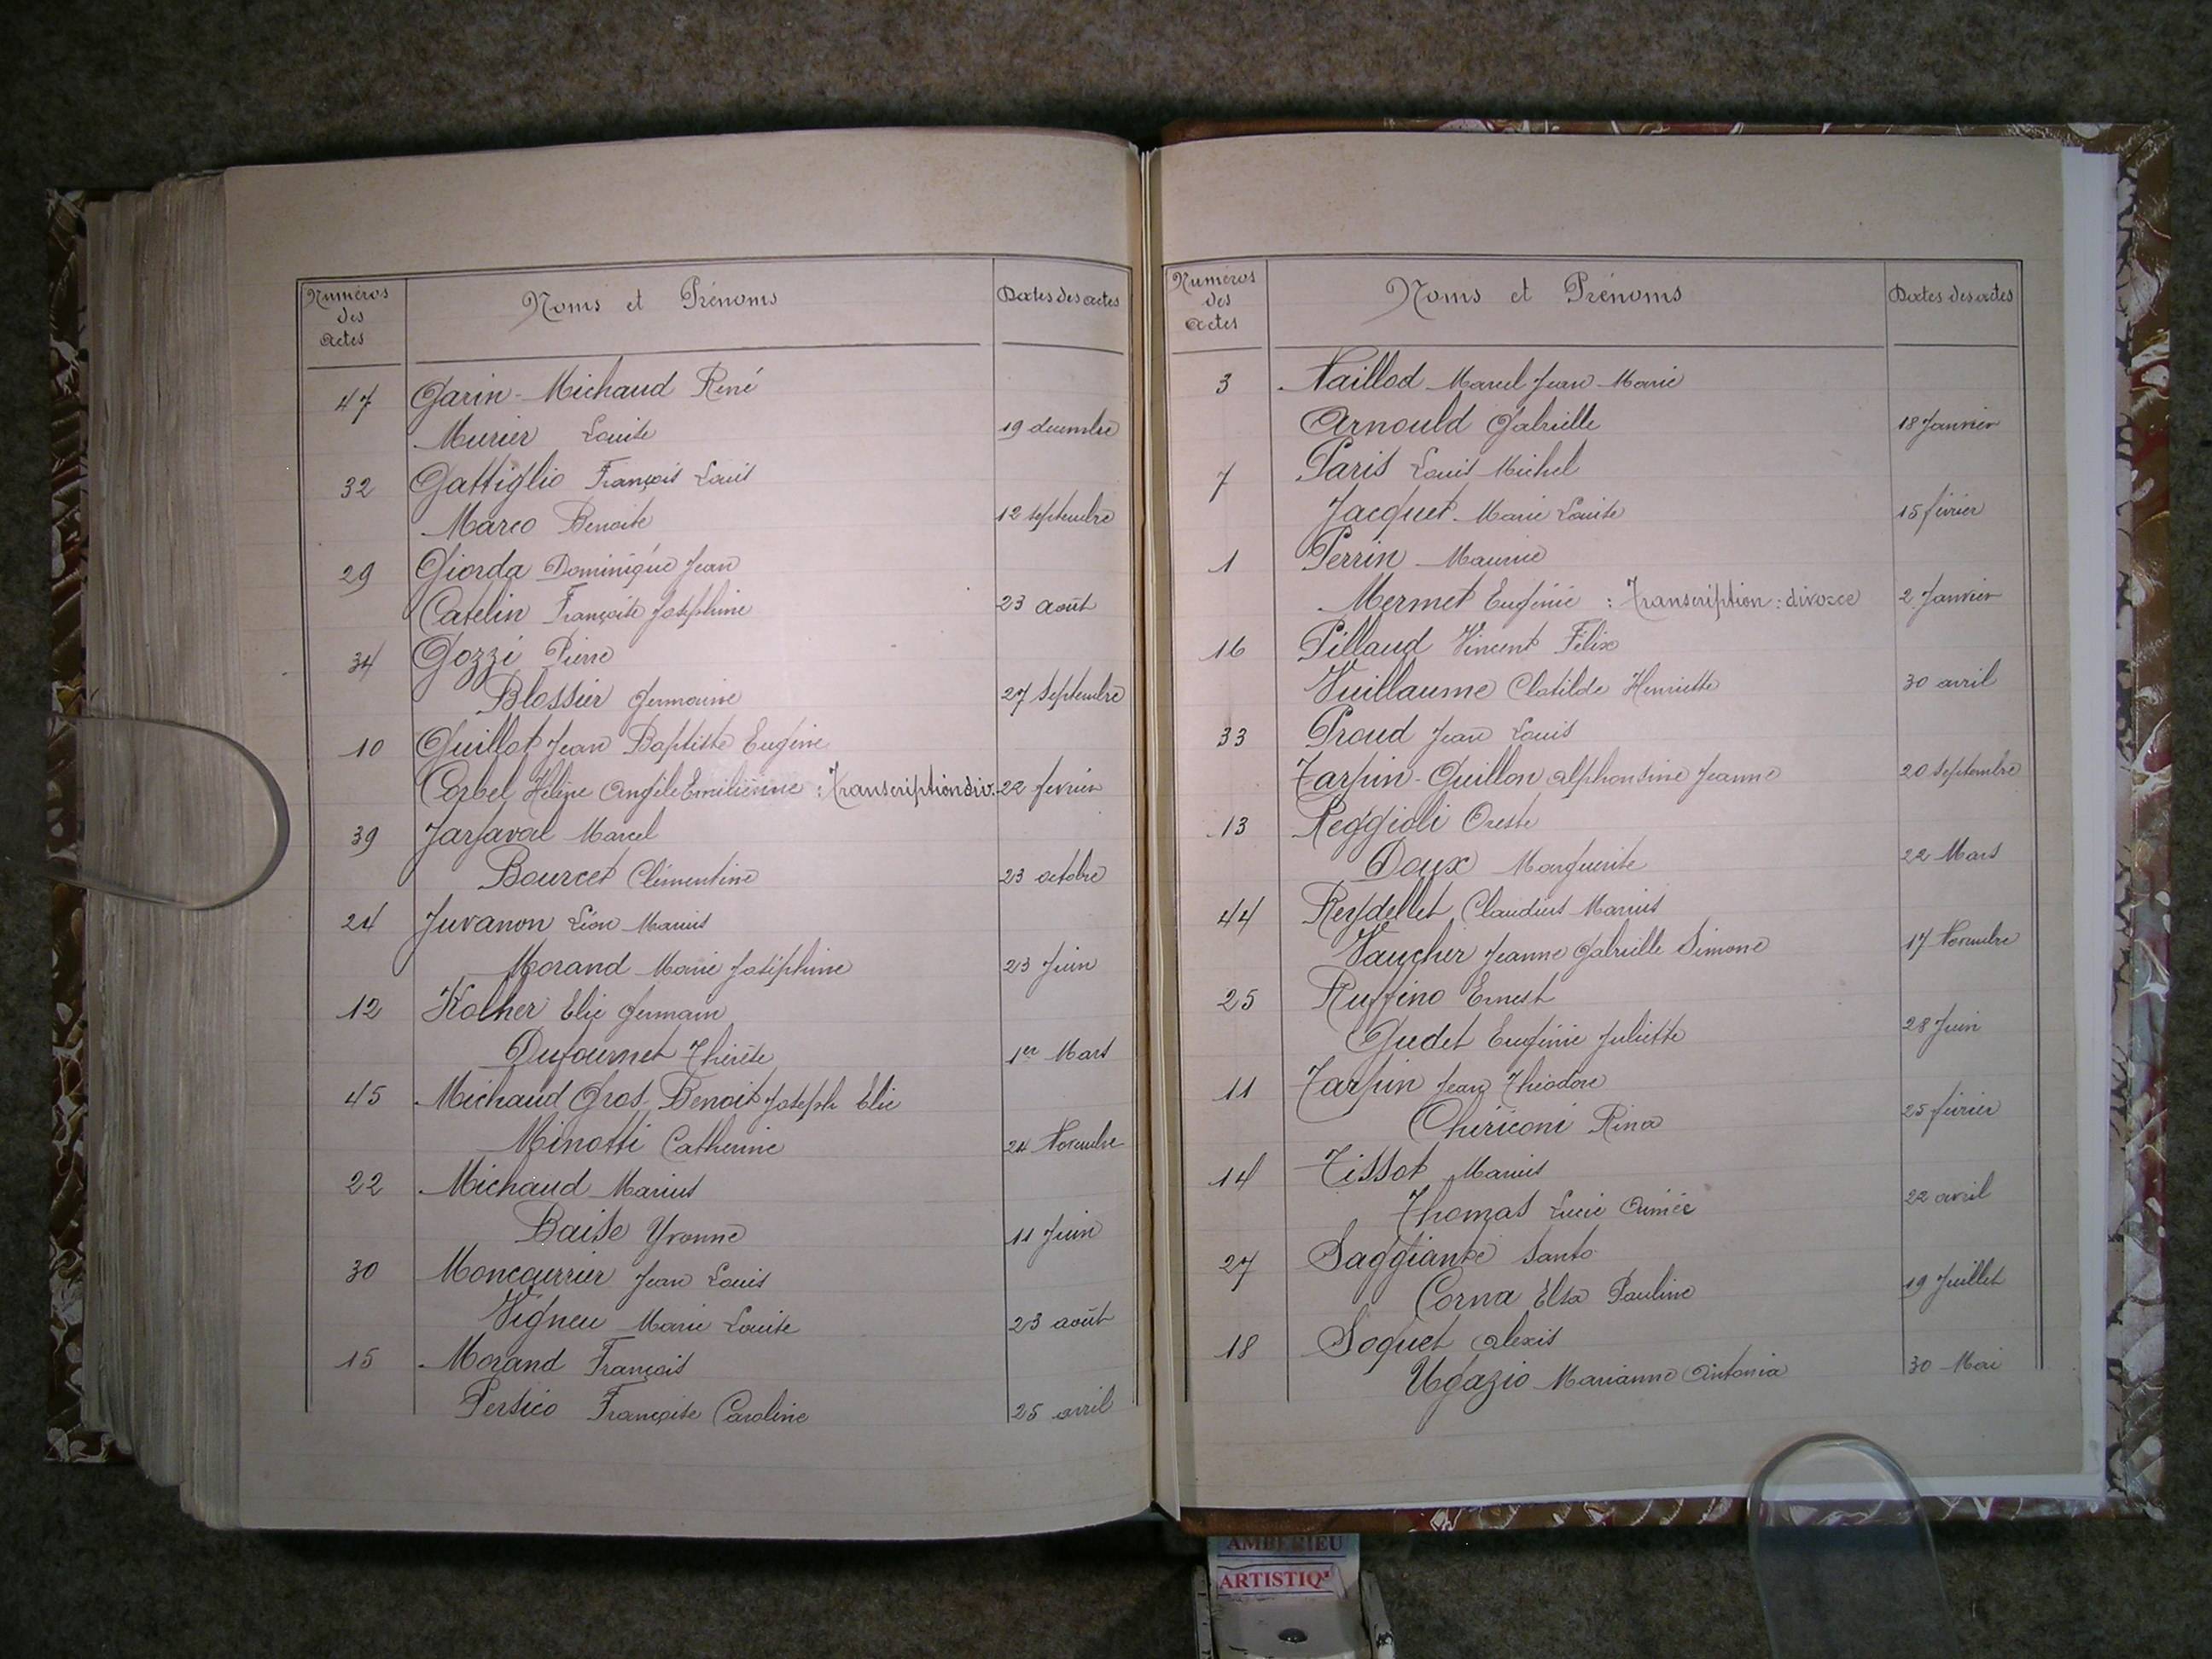 Numéros des actes | Noms et Prénoms | Dates des actes
47 Garin-Michaud René
Murier Louise 19 décembre
32 Gattiglio François Louis
Marco Benoite 12 septembre
29 Giorda Dominique Jean
Catelin Françoise Joséphine 23 août
34 Gozzi Pierre
Blossier Germaine 27 septembre
10 Guillot Jean Baptiste Eugène
Corbel Hélène Angèle Emilienne : Transcription div. 22 fevrier
39 Jarjaval Marcel
Bourcet Clémentine 23 octobre
24 Juvanon Léon Marius
Morand Marie Joséphine 23 Juin
12 Kolher Elie Germain
Dufournet Thérèse 1er Mars
45 Michaud Gros-Benoit Joseph Elie
Minotti Catherine 24 Novembre
22 Michaud Marius
Baise Yvonne 11 Juin
30 Moncourrier Jean Louis
Vigneu Marie Louise 23 août
15 Morand François
Persico Françoise Caroline 25 avril
Numéros des actes | Noms et Prénoms | Dates des actes
3 Naillod Marcel Jean Marie
Arnould Gabrielle 18 Janvier
7 Paris Louis Michel
Jacquet Marie Louise 15 février
1 Perrin Maurice
Mermet Eugénie : Transcription : divorce 2 Janvier
16 Pillaud Vincent Félix
Vuillaume Clotilde Henriette 30 avril
33 Proud Jean Louis
Tarpin-Guillon Alphonsine Jeanne 20 septembre
13 Reggioli Oreste
Doux Marguerite 22 Mars
44 Reydellet Claudius Marius
Vaucher Jeanne Gabrielle Simone 17 Novembre
25 Ruffino Ernest
Gudet Eugénie Juliette 28 Juin
11 Tarpin Jean Théodore
Chiriconi Rina 25 février
14 Tissot Marius
Thomas Lucie Aimée 22 avril
27 Saggiante Santo
Corna Elsa Pauline 19 Juillet
18 Soquet Alexis
Ugazio Marianne Antonia 30 Mai
AMBERIEU
ARTISTIQ